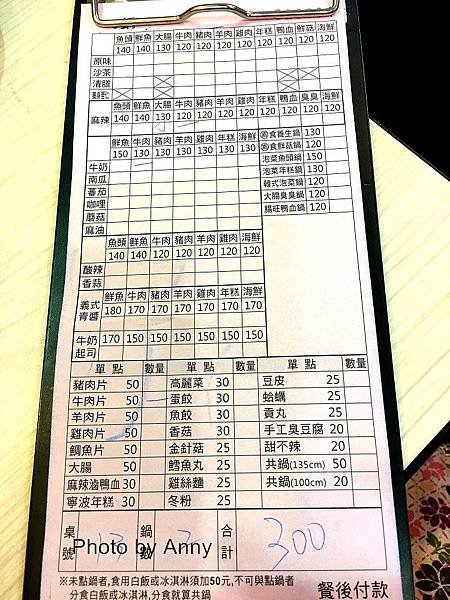 魚頭 鮮魚 大腸 牛肉 豬肉 羊肉 雞肉 年糕 鴨血 鮮菇 海鮮
140 140 130 120 120 120 120 120 120 120 120
原味
沙茶
清膳
魚頭 鮮魚 大腸 牛肉 豬肉 羊肉 雞肉 年糕 鴨血 臭臭 海鮮
麻辣 140 140 130 120 120 120 120 120 120 120 120
鮮魚 牛肉 豬肉 羊肉 雞肉 年糕 海鮮
150 130 130 130 130 130 130
牛奶
南瓜
蕃茄
咖哩
蘑菇
麻油
素食養生鍋 130
素食鮮菇鍋 120
泡菜魚頭鍋 150
泡菜年糕鍋 130
韓式泡菜鍋 120
大腸臭臭鍋 120
腸旺鴨血鍋 120
魚頭 鮮魚 牛肉 豬肉 羊肉 雞肉 海鮮
140 140 120 120 120 120 120
酸辣
香蒜
鮮魚 牛肉 豬肉 羊肉 雞肉 年糕 海鮮
義式青醬 180 170 170 170 170 170 170
牛奶起司 170 150 150 150 150 150 150
單點 數量 單點 數量 單點 數量
豬肉片 50 高麗菜 30 豆皮 25
牛肉片 50 蛋餃 30 蛤蠣 25
羊肉片 50 魚餃 30 貢丸 25
雞肉片 50 香菇 30 手工臭豆腐 20
鯛魚片 50 金針菇 25 甜不辣 20
大腸 50 鱈魚丸 25 共鍋(135cm) 50
麻辣滷鴨血 30 雞絲麵 25 共鍋(100cm) 20
寧波年糕 30 冬粉 25
桌號 13 鍋數 2 合計 300
Photo by Anny
※未點鍋者,食用白飯或冰淇淋須加50元,不可與點鍋者
分食白飯或冰淇淋,分食就算共鍋
餐後付款